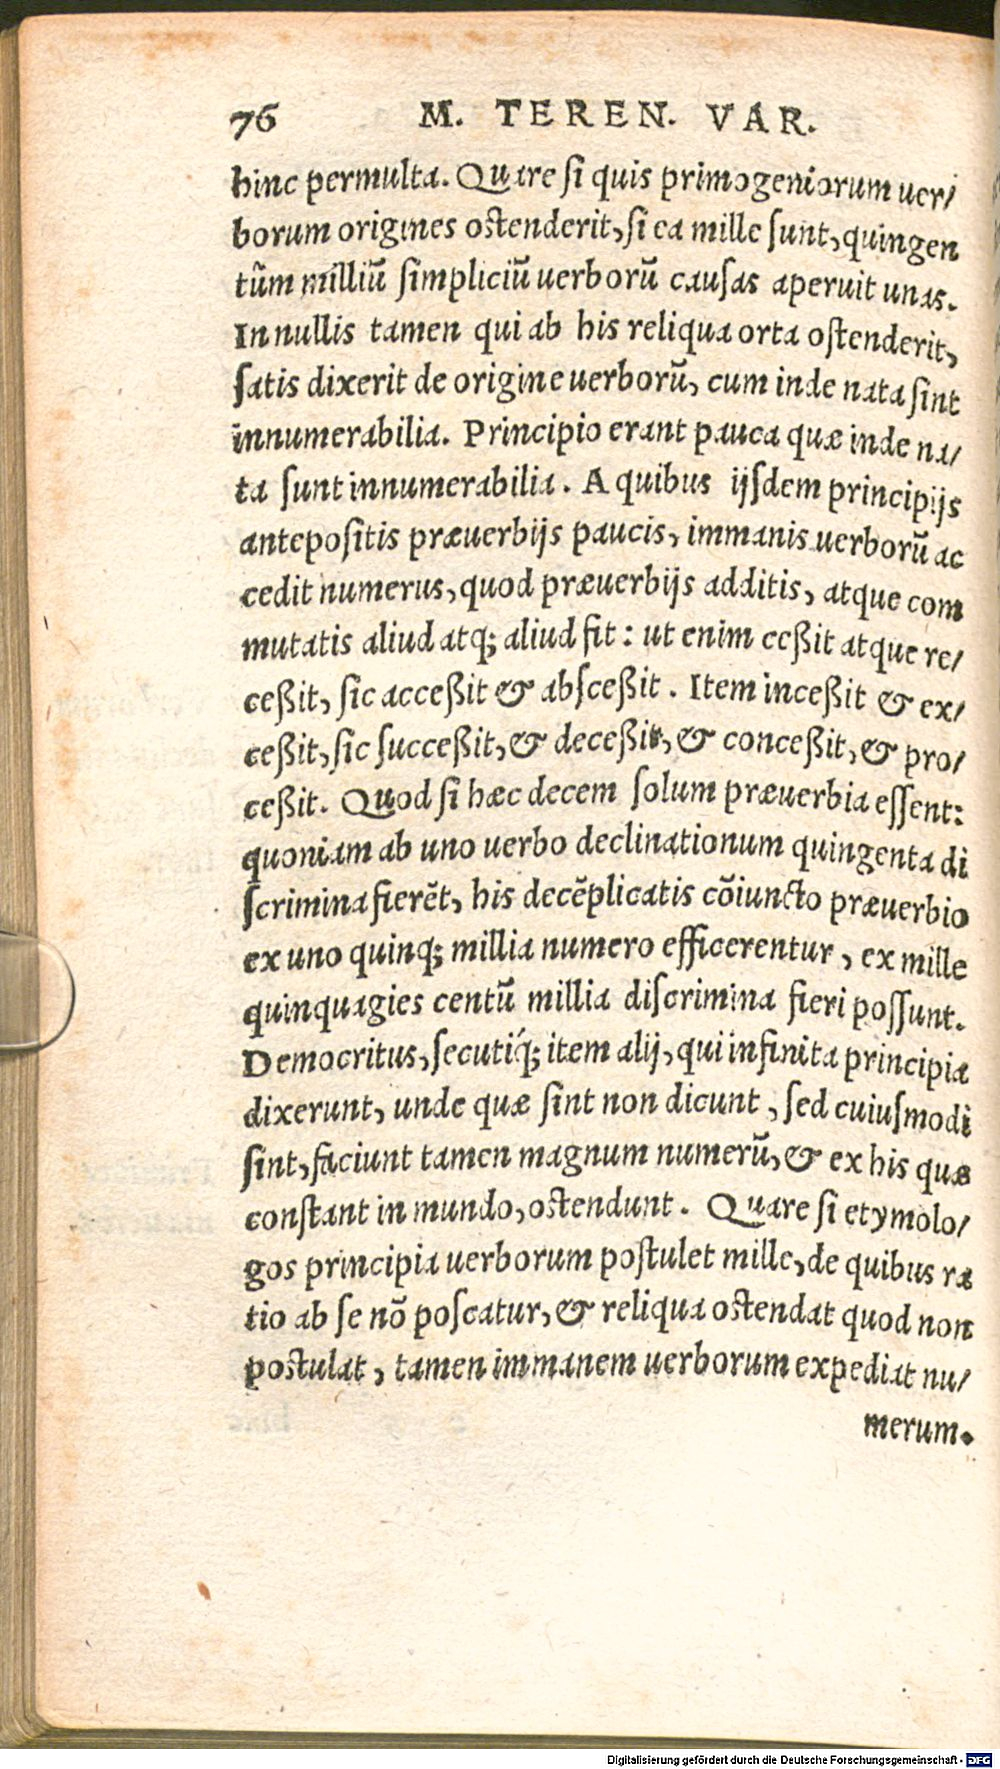 76 M. TEREN. VAR.
hinc permulta. Quare ſi quis primogeniorum uer/
borum origines oſtenderit, ſi ea mille ſunt, quingen
tũm milliũ ſimpliciũ uerborũ cauſas aperuit unas.
In nullis tamen qui ab his reliqua orta oſtenderit,
ſatis dixerit de origine uerborũ, cum inde nata ſint
innumerabilia. Principio erant pauca quæ inde na/
ta ſunt innumerabilia. A quibus ijſdem principijs
antepoſitis præuerbijs paucis, immanis uerborũ ac
cedit numerus, quod præuerbijs additis, atque com
mutatis aliud atq; aliud fit: ut enim ceßit atque re/
ceßit, ſic acceßit & abſceßit. Item inceßit & ex/
ceßit, ſic ſucceßit, & deceßit, & conceßit, & pro/
ceßit. Quod ſi hæc decem ſolum præuerbia eſſent:
quoniam ab uno uerbo declinationum quingenta di
ſcrimina fierẽt, his decẽplicatis cõiuncto præuerbio
ex uno quinq; millia numero efficerentur, ex mille
quinquagies centũ millia diſcrimina fieri poſſunt.
Democritus, ſecutiq́; item alij, qui infinita principia
dixerunt, unde quæ ſint non dicunt, ſed cuiuſmodi
ſint, faciunt tamen magnum numerũ, & ex his quæ
conſtant in mundo, oſtendunt. Quare ſi etymolo/
gos principia uerborum poſtulet mille, de quibus ra
tio ab ſe nõ poſcatur, & reliqua oſtendat quod non
poſtulat, tamen immanem uerborum expediat nu/
merum.
Digitalisierung gefördert durch die Deutsche Forschungsgemeinschaft - DFG